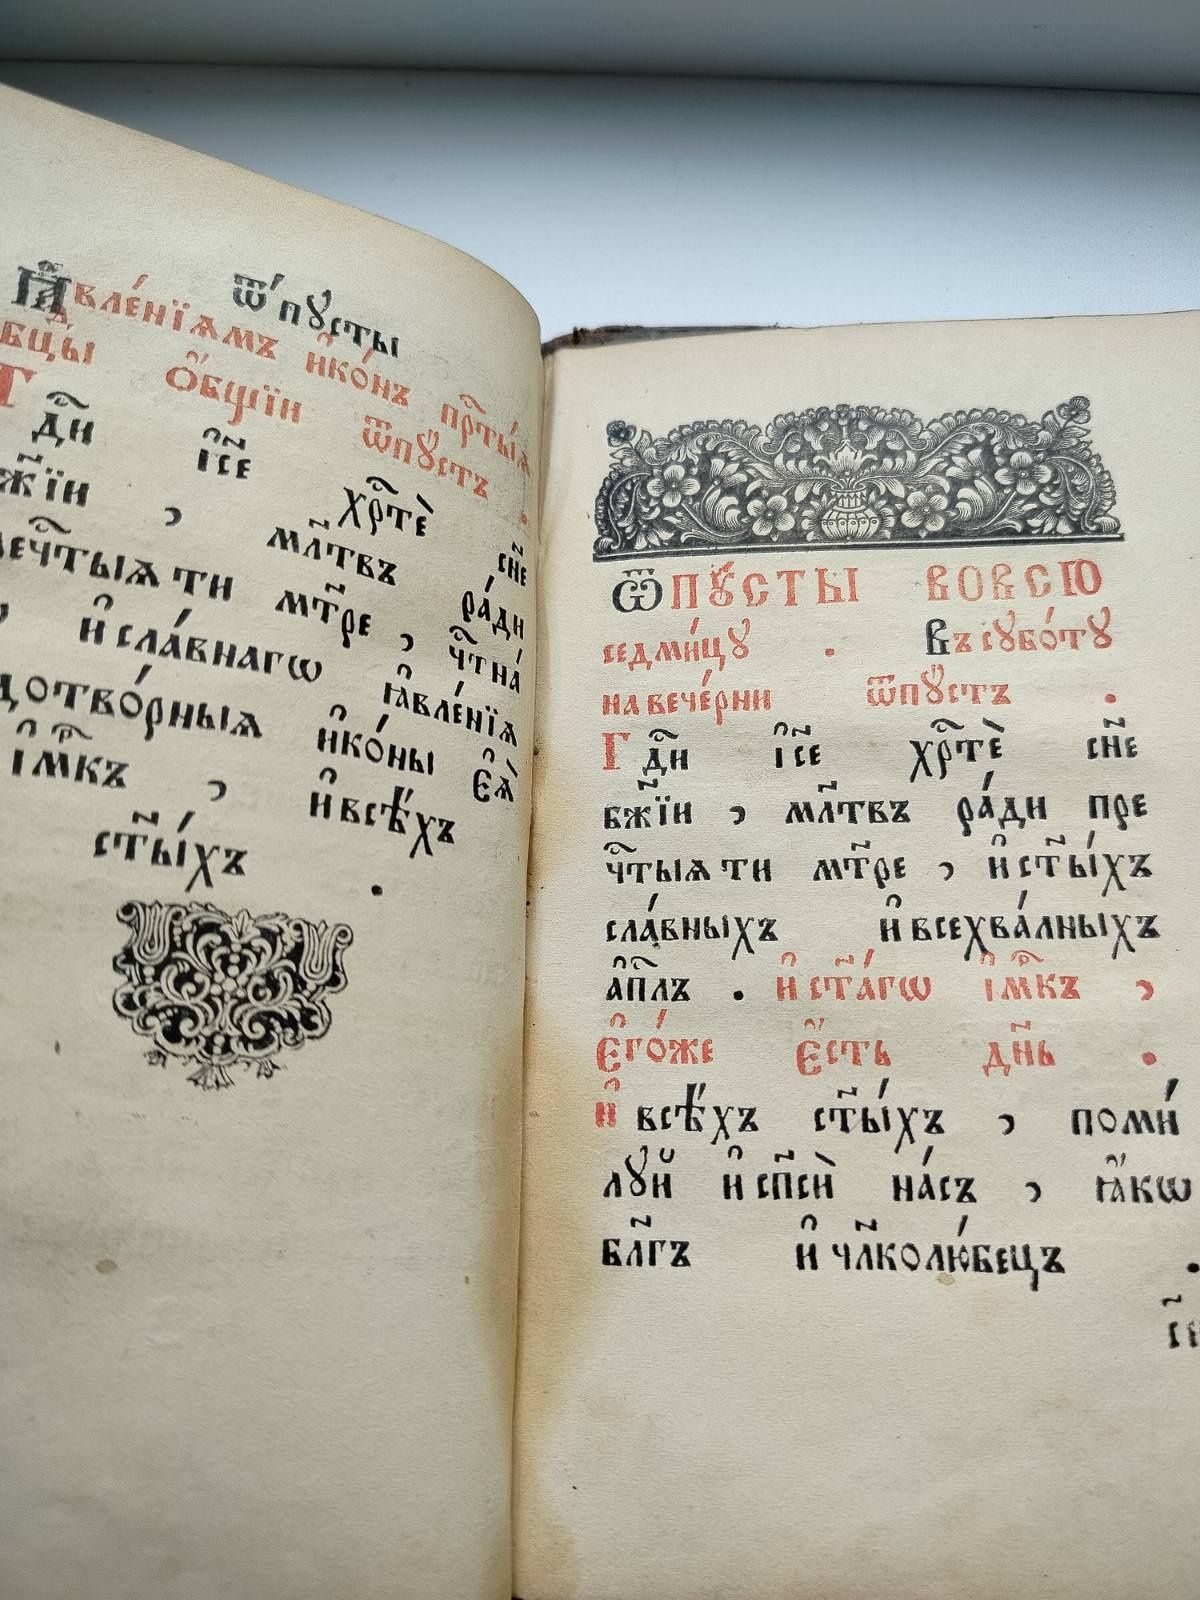 Ѿпꙋсты
Ꙗвле́нїѧмъ и҆ко́нъ прⷭ҇ты́ѧ
бцⷣы о҆́бщїи ѿпꙋ́стъ .
Гдⷭ҇и і҆се хрⷭ҇тѐ сн҃е
жїи , мл҃твъ ра́ди
чⷭ҇тыѧ ти мт҃ре , чⷭ҇тна́
и҆ сла́внагѡ ꙗ҆вле́нїѧ
дотво́рныѧ и҆ко́ны є҆ѧ̀
і҆мⷬ҇къ , и҆ всѣ́хъ
ст҃ы́хъ .
Ѿпꙋ́сты вовсю
седми́цꙋ . Въ сꙋбо́тꙋ
на вече́рни ѿпꙋ́стъ .
Гдⷭ҇и і҆се хрⷭ҇тѐ сн҃е
бж҃їи , мл҃твъ ра́ди пре
чⷭ҇тыѧ ти мт҃ре , и҆ ст҃ы́хъ
сла́вныхъ и҆ всехва́лныхъ
а҆пⷭ҇лъ . и҆ ст҃а́гѡ і҆мⷬ҇къ ,
є҆го́же є҆́сть дн҃ь .
и҆ всѣ́хъ ст҃ы́хъ , поми́
лꙋй и҆ сп҃сѝ на́съ , ꙗ҆́кѡ
бл҃гъ и҆ чл҃колю́бецъ .